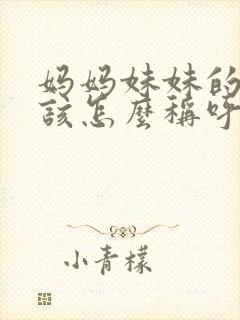 妈妈妹妹的
该怎麼稱呼
小青檬